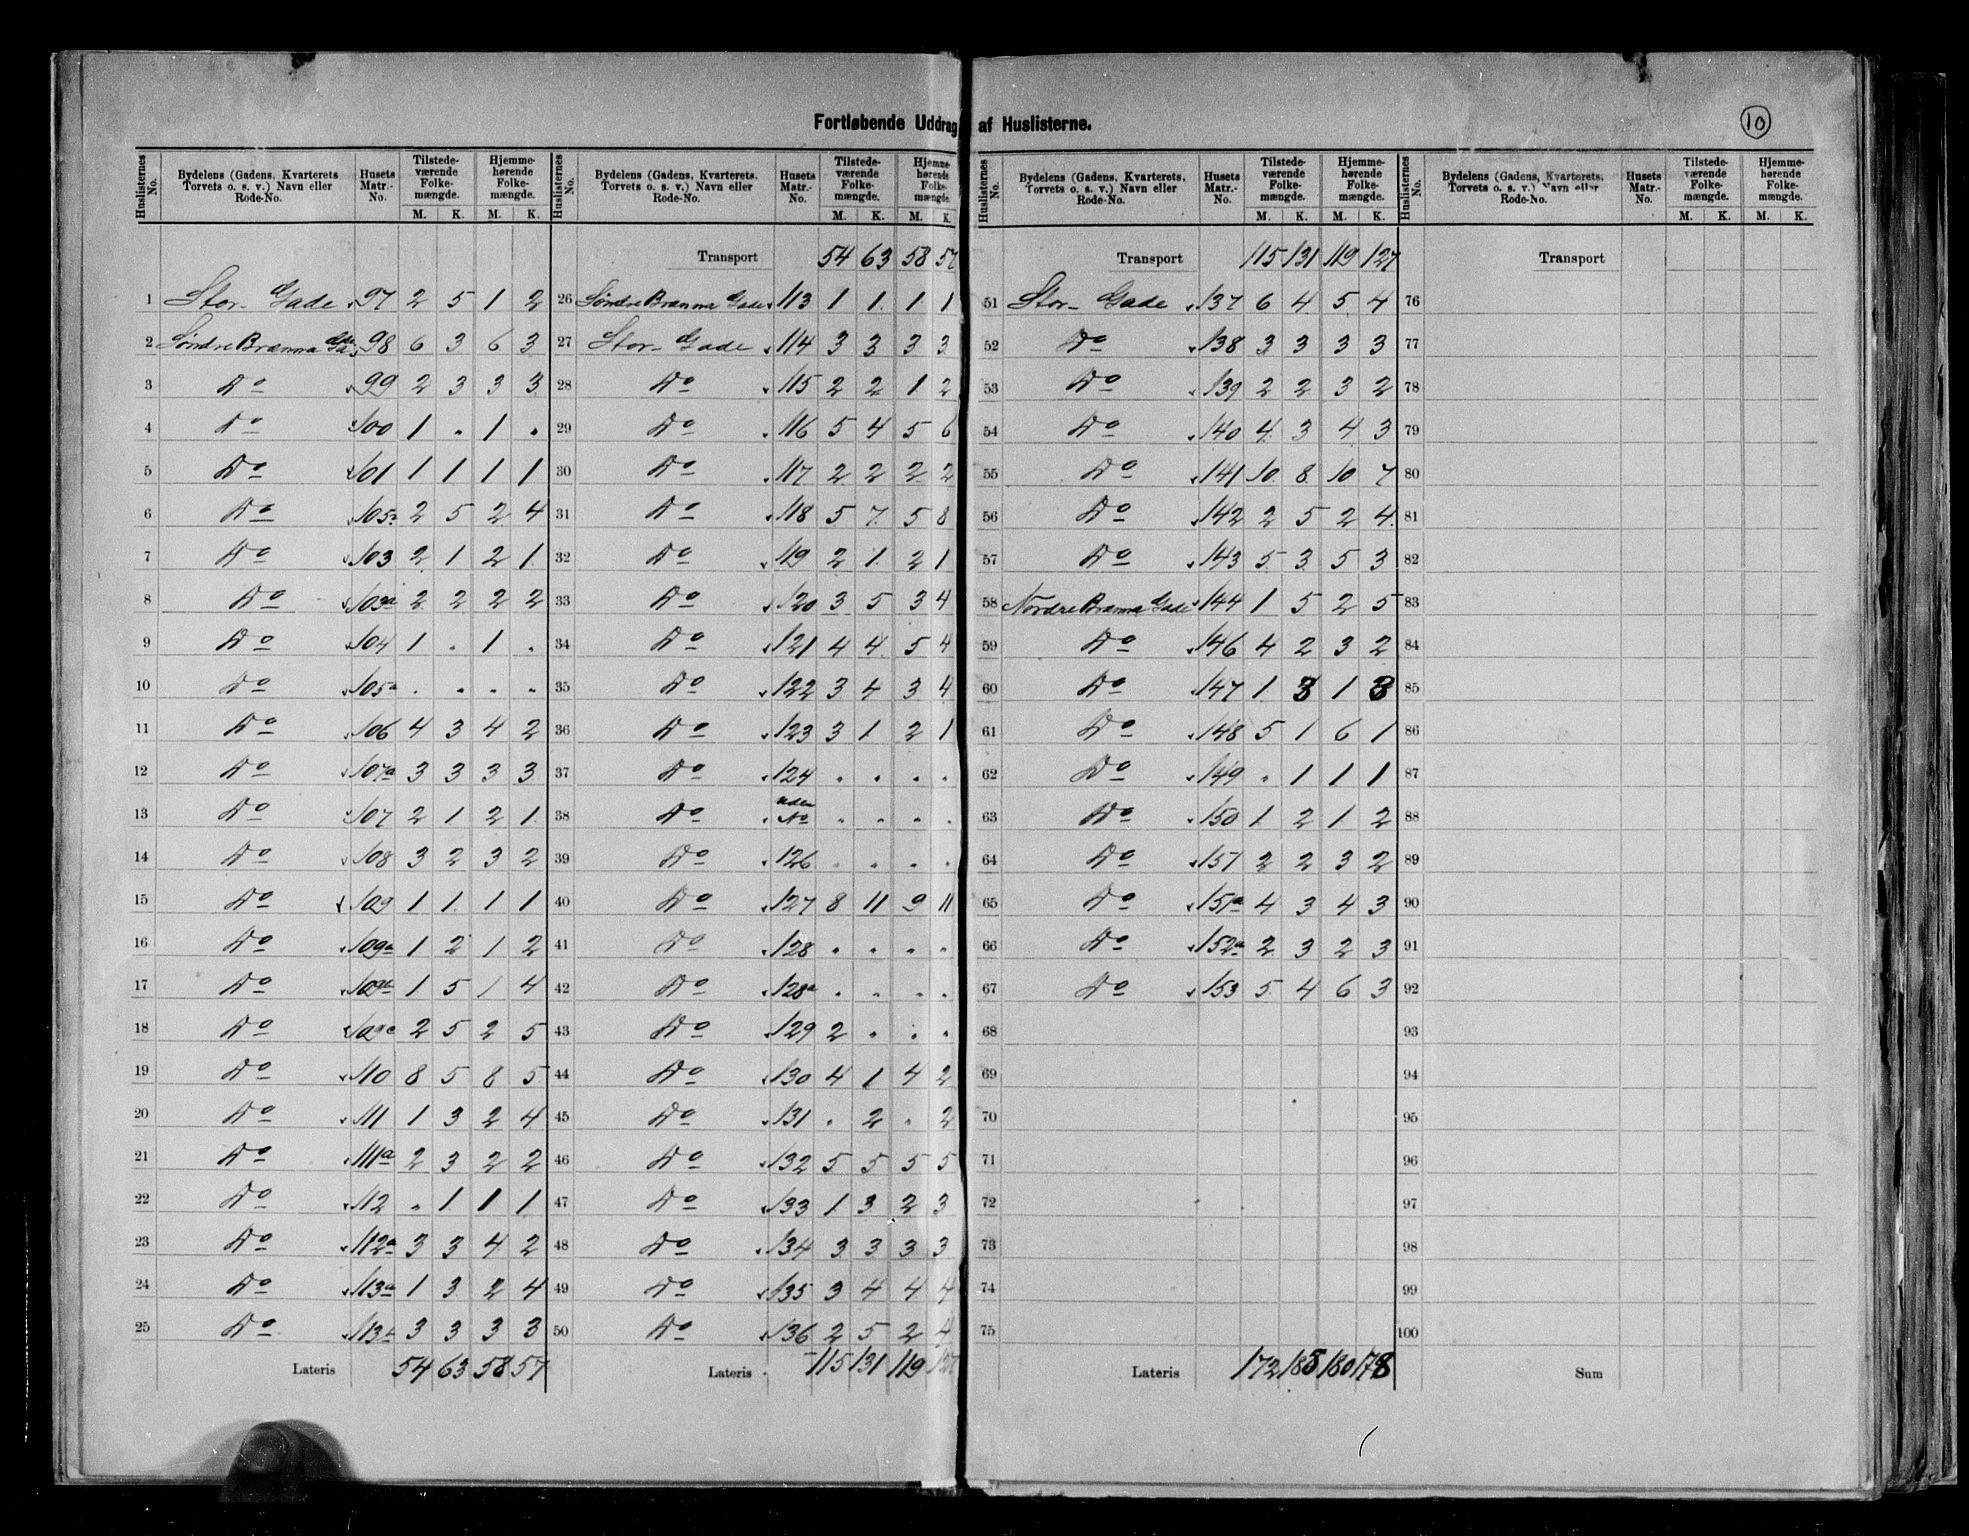 Fortløbende Uddrag af Huslisterne.
10
Huslisternes No. | Bydelens (Gadens, Kvarterets Torvets o. s. v.) Navn eller Rode-No. | Husets Matr.-No. | Tilstede-værende Folke-mængde. M. K. | Hjemme-hørende Folke-mængde. M. K.
1 Stor- Gade 97 2 5 1 2
2 Søndre Branna Gade 98 6 3 6 3
3 Do 99 2 3 3 3
4 Do 100 1 " 1 "
5 Do 101 1 1 1 1
6 Do 105 2 5 2 4
7 Do 103 2 1 2 1
8 Do 103a 2 2 2 2
9 Do 104 1 " 1 "
10 Do 105a " " " "
11 Do 106 4 3 4 2
12 Do 107a 3 3 3 3
13 Do 107 2 1 2 1
14 Do 108 3 2 3 2
15 Do 109 1 1 1 1
16 Do 109a 1 2 1 2
17 Do 109b 1 5 1 4
18 Do 109c 2 5 2 5
19 Do 110 8 5 8 5
20 Do 111 1 3 2 4
21 Do 111a 2 3 2 2
22 Do 112 " 1 1 1
23 Do 112a 3 3 4 2
24 Do 113a 1 3 2 4
25 Do 113b 3 3 3 3
Lateris 54 63 58 57
Huslisternes No. | Bydelens (Gadens, Kvarterets, Torvets o. s. v.) Navn eller Rode-No. | Husets Matr.-No. | Tilstede-værende Folke-mængde. M. K. | Hjemme-hørende Folke-mængde. M. K.
Transport 54 63 58 57
26 Søndre Branna Gade 113 1 1 1 1
27 Stor- Gade 114 3 3 3 3
28 Do 115 2 2 1 2
29 Do 116 5 4 5 6
30 Do 117 2 2 2 2
31 Do 118 5 7 5 8
32 Do 119 2 1 2 1
33 Do 120 3 5 3 4
34 Do 121 4 4 5 4
35 Do 122 3 4 3 4
36 Do 123 3 1 2 1
37 Do 124 " " " "
38 Do uden No " " " "
39 Do 126 " " " "
40 Do 127 8 11 9 11
41 Do 128 " " " "
42 Do 128a " " " "
43 Do 129 2 " " "
44 Do 130 4 1 4 2
45 Do 131 " 2 " 2
46 Do 132 5 5 5 5
47 Do 133 1 3 2 3
48 Do 134 3 3 3 3
49 Do 135 3 4 4 4
50 Do 136 2 5 2 4
Lateris 115 131 119 127
Huslisternes No. | Bydelens (Gadens, Kvarterets, Torvets o. s. v.) Navn eller Rode-No. | Husets Matr.-No. | Tilstede-værende Folke-mængde. M. K. | Hjemme-hørende Folke-mængde. M. K.
Transport 115 131 119 127
51 Stor- Gade 137 6 4 5 4
52 Do 138 3 3 3 3
53 Do 139 2 2 3 2
54 Do 140 4 3 4 3
55 Do 141 10 8 10 7
56 Do 142 2 5 2 4
57 Do 143 5 3 5 3
58 Nordre Branna Gade 144 1 5 2 5
59 Do 146 4 2 3 2
60 Do 147 1 3 1 3
61 Do 148 5 1 6 1
62 Do 149 " 1 1 1
63 Do 150 1 2 1 2
64 Do 151 2 2 3 2
65 Do 151a 4 3 4 3
66 Do 152a 2 3 2 3
67 Do 153 5 4 6 3
68
69
70
71
72
73
74
75
Lateris 172 185 180 178
Huslisternes No. | Bydelens (Gadens, Kvarterets, Torvets o. s. v.) Navn eller Rode-No. | Husets Matr.-No. | Tilstede-værende Folke-mængde. M. K. | Hjemme-hørende Folke-mængde. M. K.
Transport
76
77
78
79
80
81
82
83
84
85
86
87
88
89
90
91
92
93
94
95
96
97
98
99
100
Sum